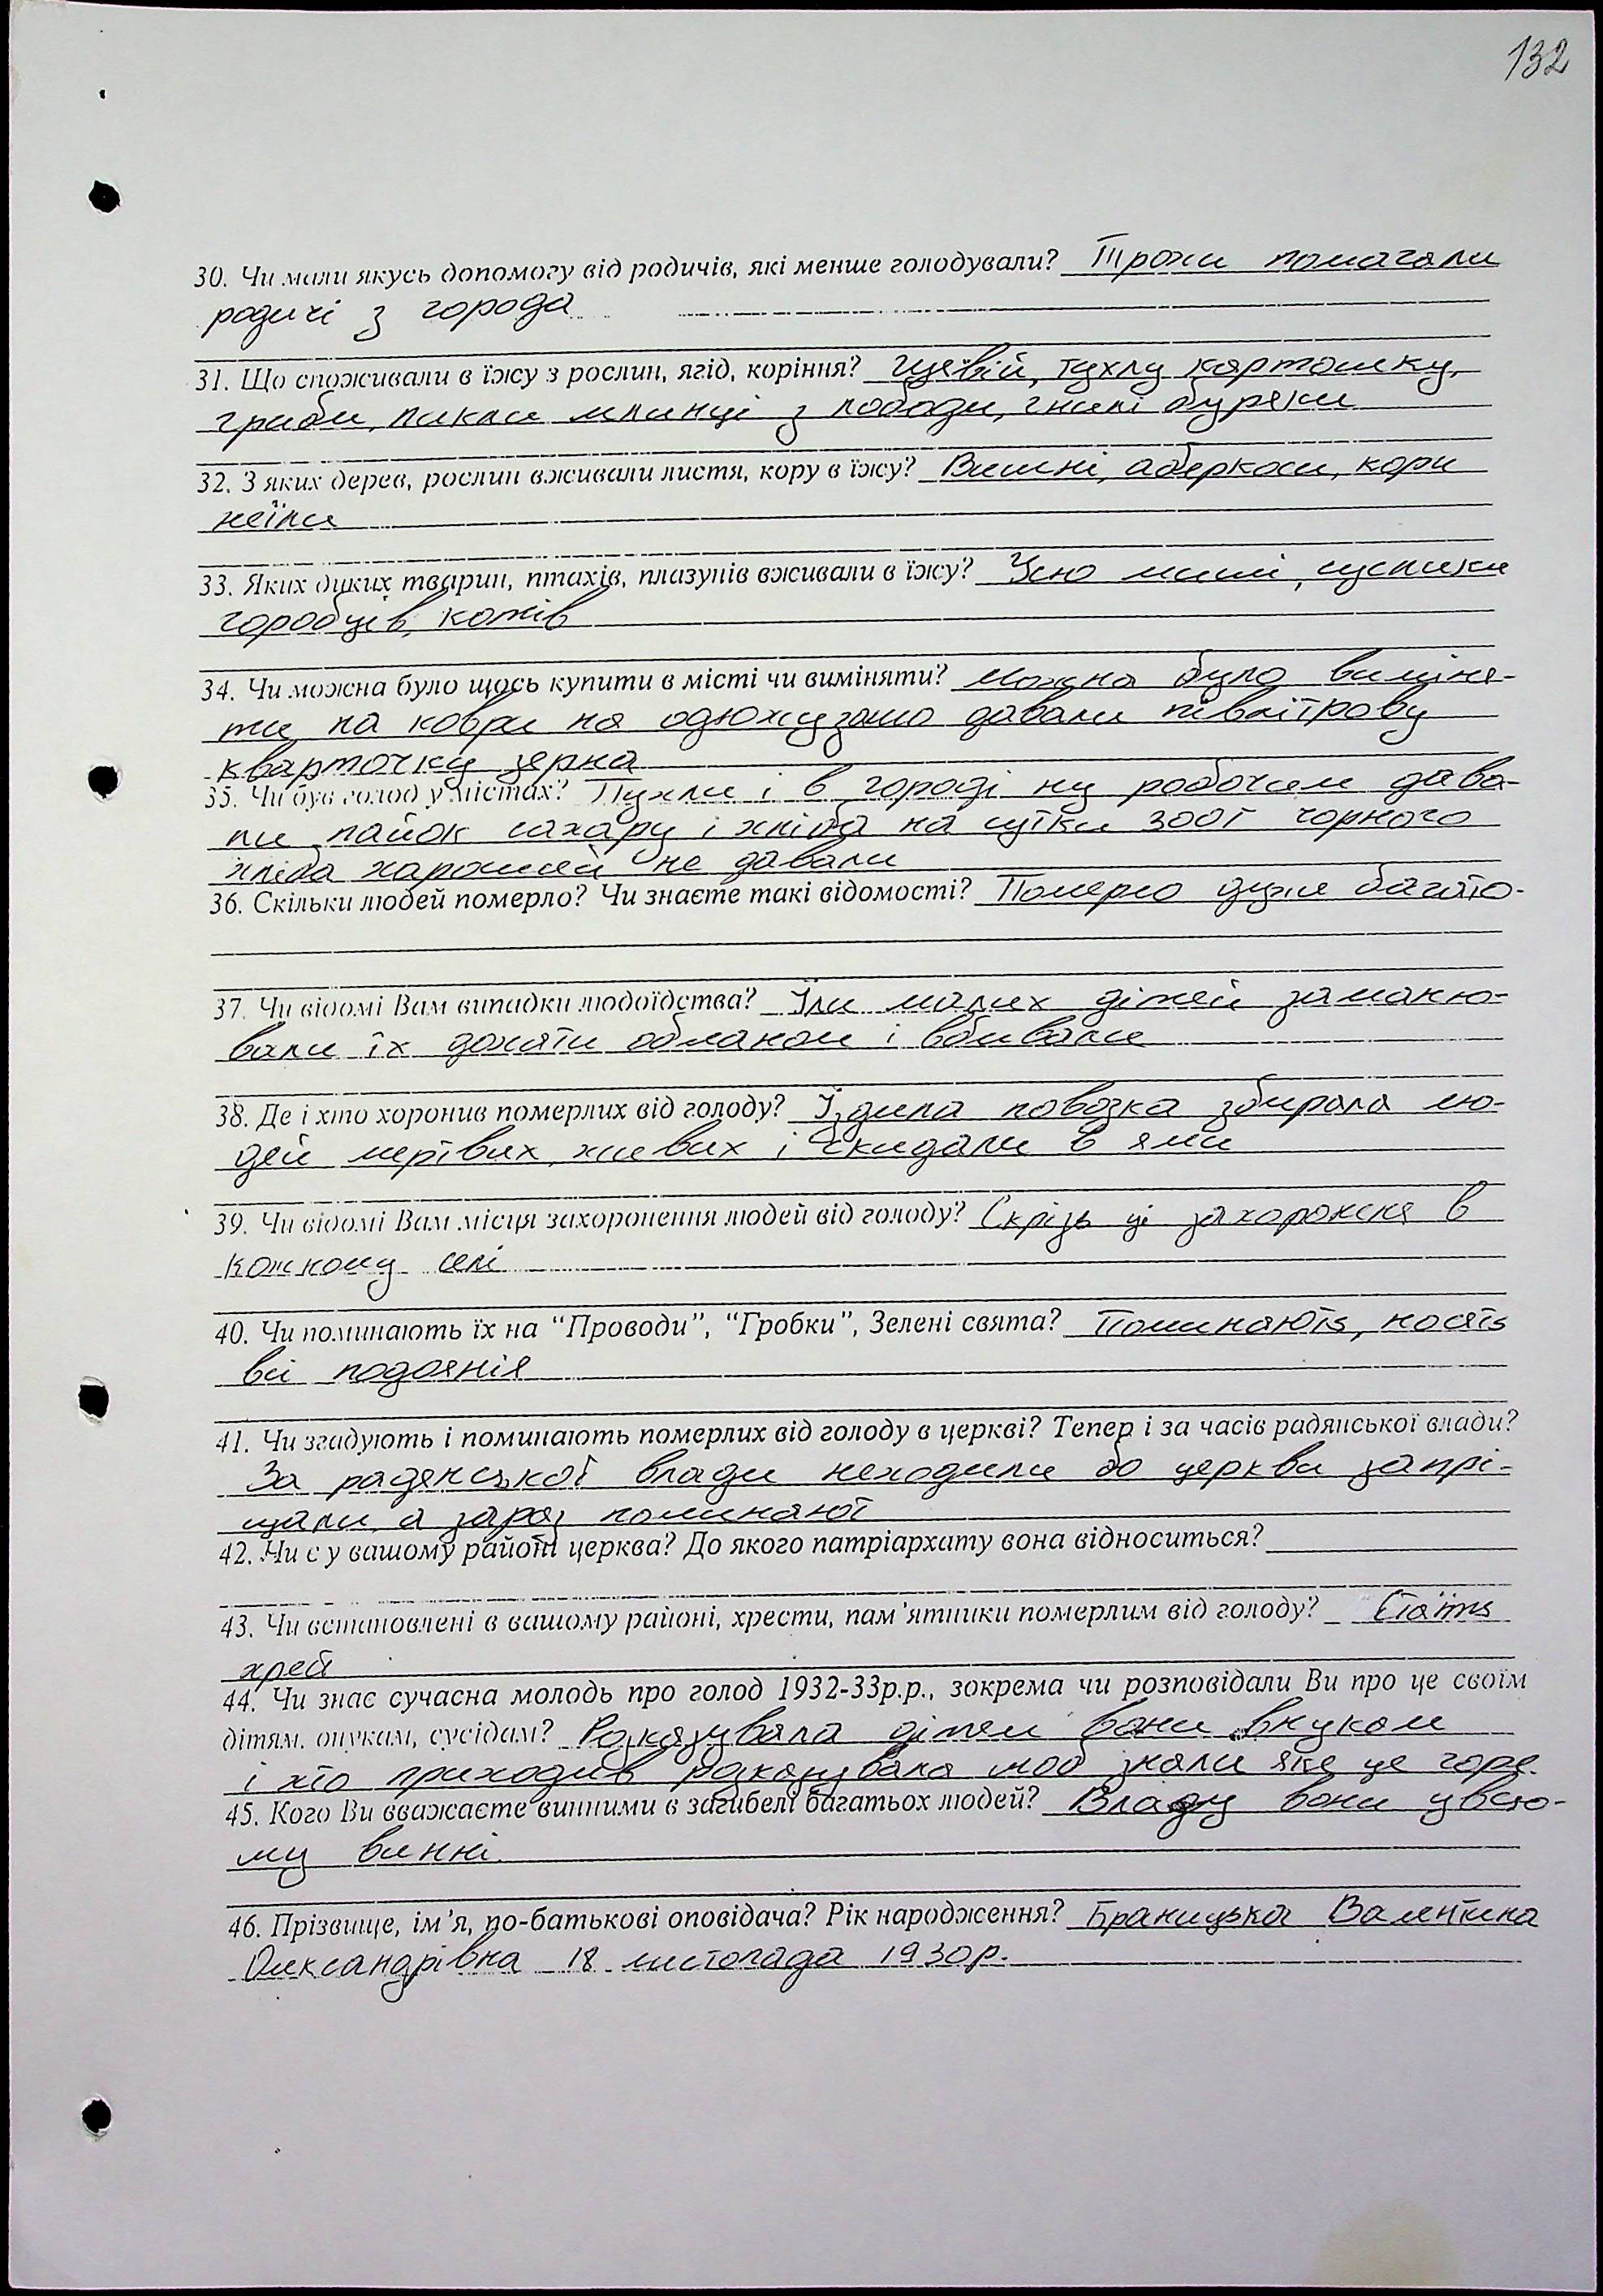 132
30. Чи мали якусь допомогу від родичів, які менше голодували? Трохи помагали
родичі з города
31. Що споживали в їжу з рослин, ягід, коріння? Щевій, тухлу картошку,
гриби, пикли млинці з лободи, гнилі буряки
32. З яких дерев, рослин вживали листя, кору в їжу? Вишні, аберкоси, кори
неїли
33. Яких диких тварин, птахів, плазунів вживали в їжу? Усю миші, сусликы
горобців, котів
34. Чи можна було щось купити в місті чи виміняти? Можна було виміня-
ти на коври на одюжу зато давали півлітрову
кварточку зерна
35. Чи був голод у містах? Пухли і в городі ну робочим дава-
ли пайок сахару і хліба на сутки 300г чорного
хліба харошей не давали
36. Скільки людей померло? Чи знаєте такі відомості? Померло дуже багато.
37. Чи відомі Вам випадки людоїдства? Їли малих дітей заманю-
вали їх дохати обманом і вбивали
38. Де і хто хоронив померлих від голоду? Їздила повозка збирала лю-
дей мертвих, живих і скидали в ями
39. Чи відомі Вам місця захоронення людей від голоду? Скрізь ці захороненя в
кожному селі
40. Чи поминають їх на “Проводи”, “Гробки”, Зелені свята? Поминають, носять
всі подоянія
41. Чи згадують і поминають померлих від голоду в церкві? Тепер і за часів радянської влади?
За радянської влади неходили до церкви запрі-
щали, а зараз поминают
42. Чи є у вашому районі церква? До якого патріархату вона відноситься?
43. Чи встановлені в вашому районі, хрести, пам’ятники померлим від голоду? Стоїть
хрест
44. Чи знає сучасна молодь про голод 1932-33р.р., зокрема чи розповідали Ви про це своїм
дітям, онукам, сусідам? Розказувала дітям вони внукам
і хто приходив розказувала шоб знали яке це горе.
45. Кого Ви вважаєте винними в загибелі багатьох людей? Владу вони увсьо-
му винні.
46. Прізвище, ім’я, по-батькові оповідача? Рік народження? Браницька Валентина
Олександрівна 18 листопада 1930р.